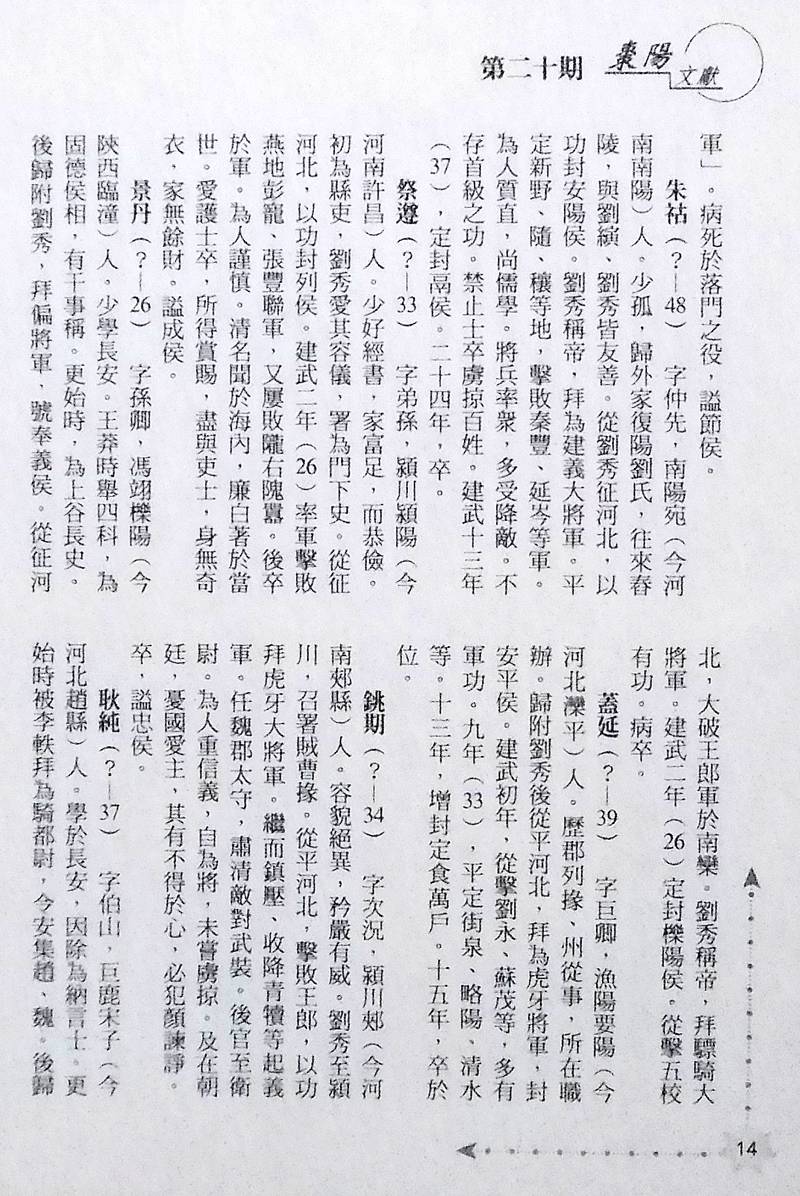 棗陽
文獻
第二十期
軍」。病死於落門之役，謚節侯。
朱祜（？—48）　字仲先，南陽宛（今河
南南陽）人。少孤，歸外家復陽劉氏，往來舂
陵，與劉縯、劉秀皆友善。從劉秀征河北，以
功封安陽侯。劉秀稱帝，拜為建義大將軍。平
定新野、隨、穰等地，擊敗秦豐、延岑等軍。
為人質直，尚儒學。將兵率衆，多受降敵。不
存首級之功。禁止士卒虜掠百姓。建武十三年
（37），定封鬲侯。二十四年，卒。
祭遵（？—33）　字弟孫，潁川潁陽（今
河南許昌）人。少好經書，家富足，而恭儉。
初為縣吏，劉秀愛其容儀，署為門下史。從征
河北，以功封列侯。建武二年（26）率軍擊敗
燕地彭寵、張豐聯軍，又屢敗隴右隗囂。後卒
於軍。為人謹慎。清名聞於海內，廉白著於當
世。愛護士卒，所得賞賜，盡與吏士，身無奇
衣，家無餘財。謚成侯。
景丹（？—26）　字孫卿，馮翊櫟陽（今
陝西臨潼）人。少學長安。王莽時舉四科，為
固德侯相，有干事稱。更始時，為上谷長史。
後歸附劉秀，拜偏將軍，號奉義侯。從征河
北，大破王郎軍於南欒。劉秀稱帝，拜驃騎大
將軍。建武二年（26）定封櫟陽侯。從擊五校
有功。病卒。
蓋延（？—39）　字巨卿，漁陽要陽（今
河北灤平）人。歷郡列掾、州從事，所在職
辦。歸附劉秀後從平河北，拜為虎牙將軍，封
安平侯。建武初年，從擊劉永、蘇茂等，多有
軍功。九年（33），平定街泉、略陽、清水
等。十三年，增封定食萬戶。十五年，卒於
位。
銚期（？—34）　字次況，潁川郟（今河
南郟縣）人。容貌絕異，矜嚴有威。劉秀至潁
川，召署賊曹掾。從平河北，擊敗王郎，以功
拜虎牙大將軍。繼而鎮壓、收降青犢等起義
軍。任魏郡太守，肅清敵對武裝。後官至衛
尉。為人重信義，自為將，未嘗虜掠。及在朝
廷，憂國愛主，其有不得於心，必犯顏諫諍。
卒，謚忠侯。
耿純（？—37）　字伯山，巨鹿宋子（今
河北趙縣）人。學於長安，因除為納言士。更
始時被李軼拜為騎都尉，令安集趙、魏。後歸
14